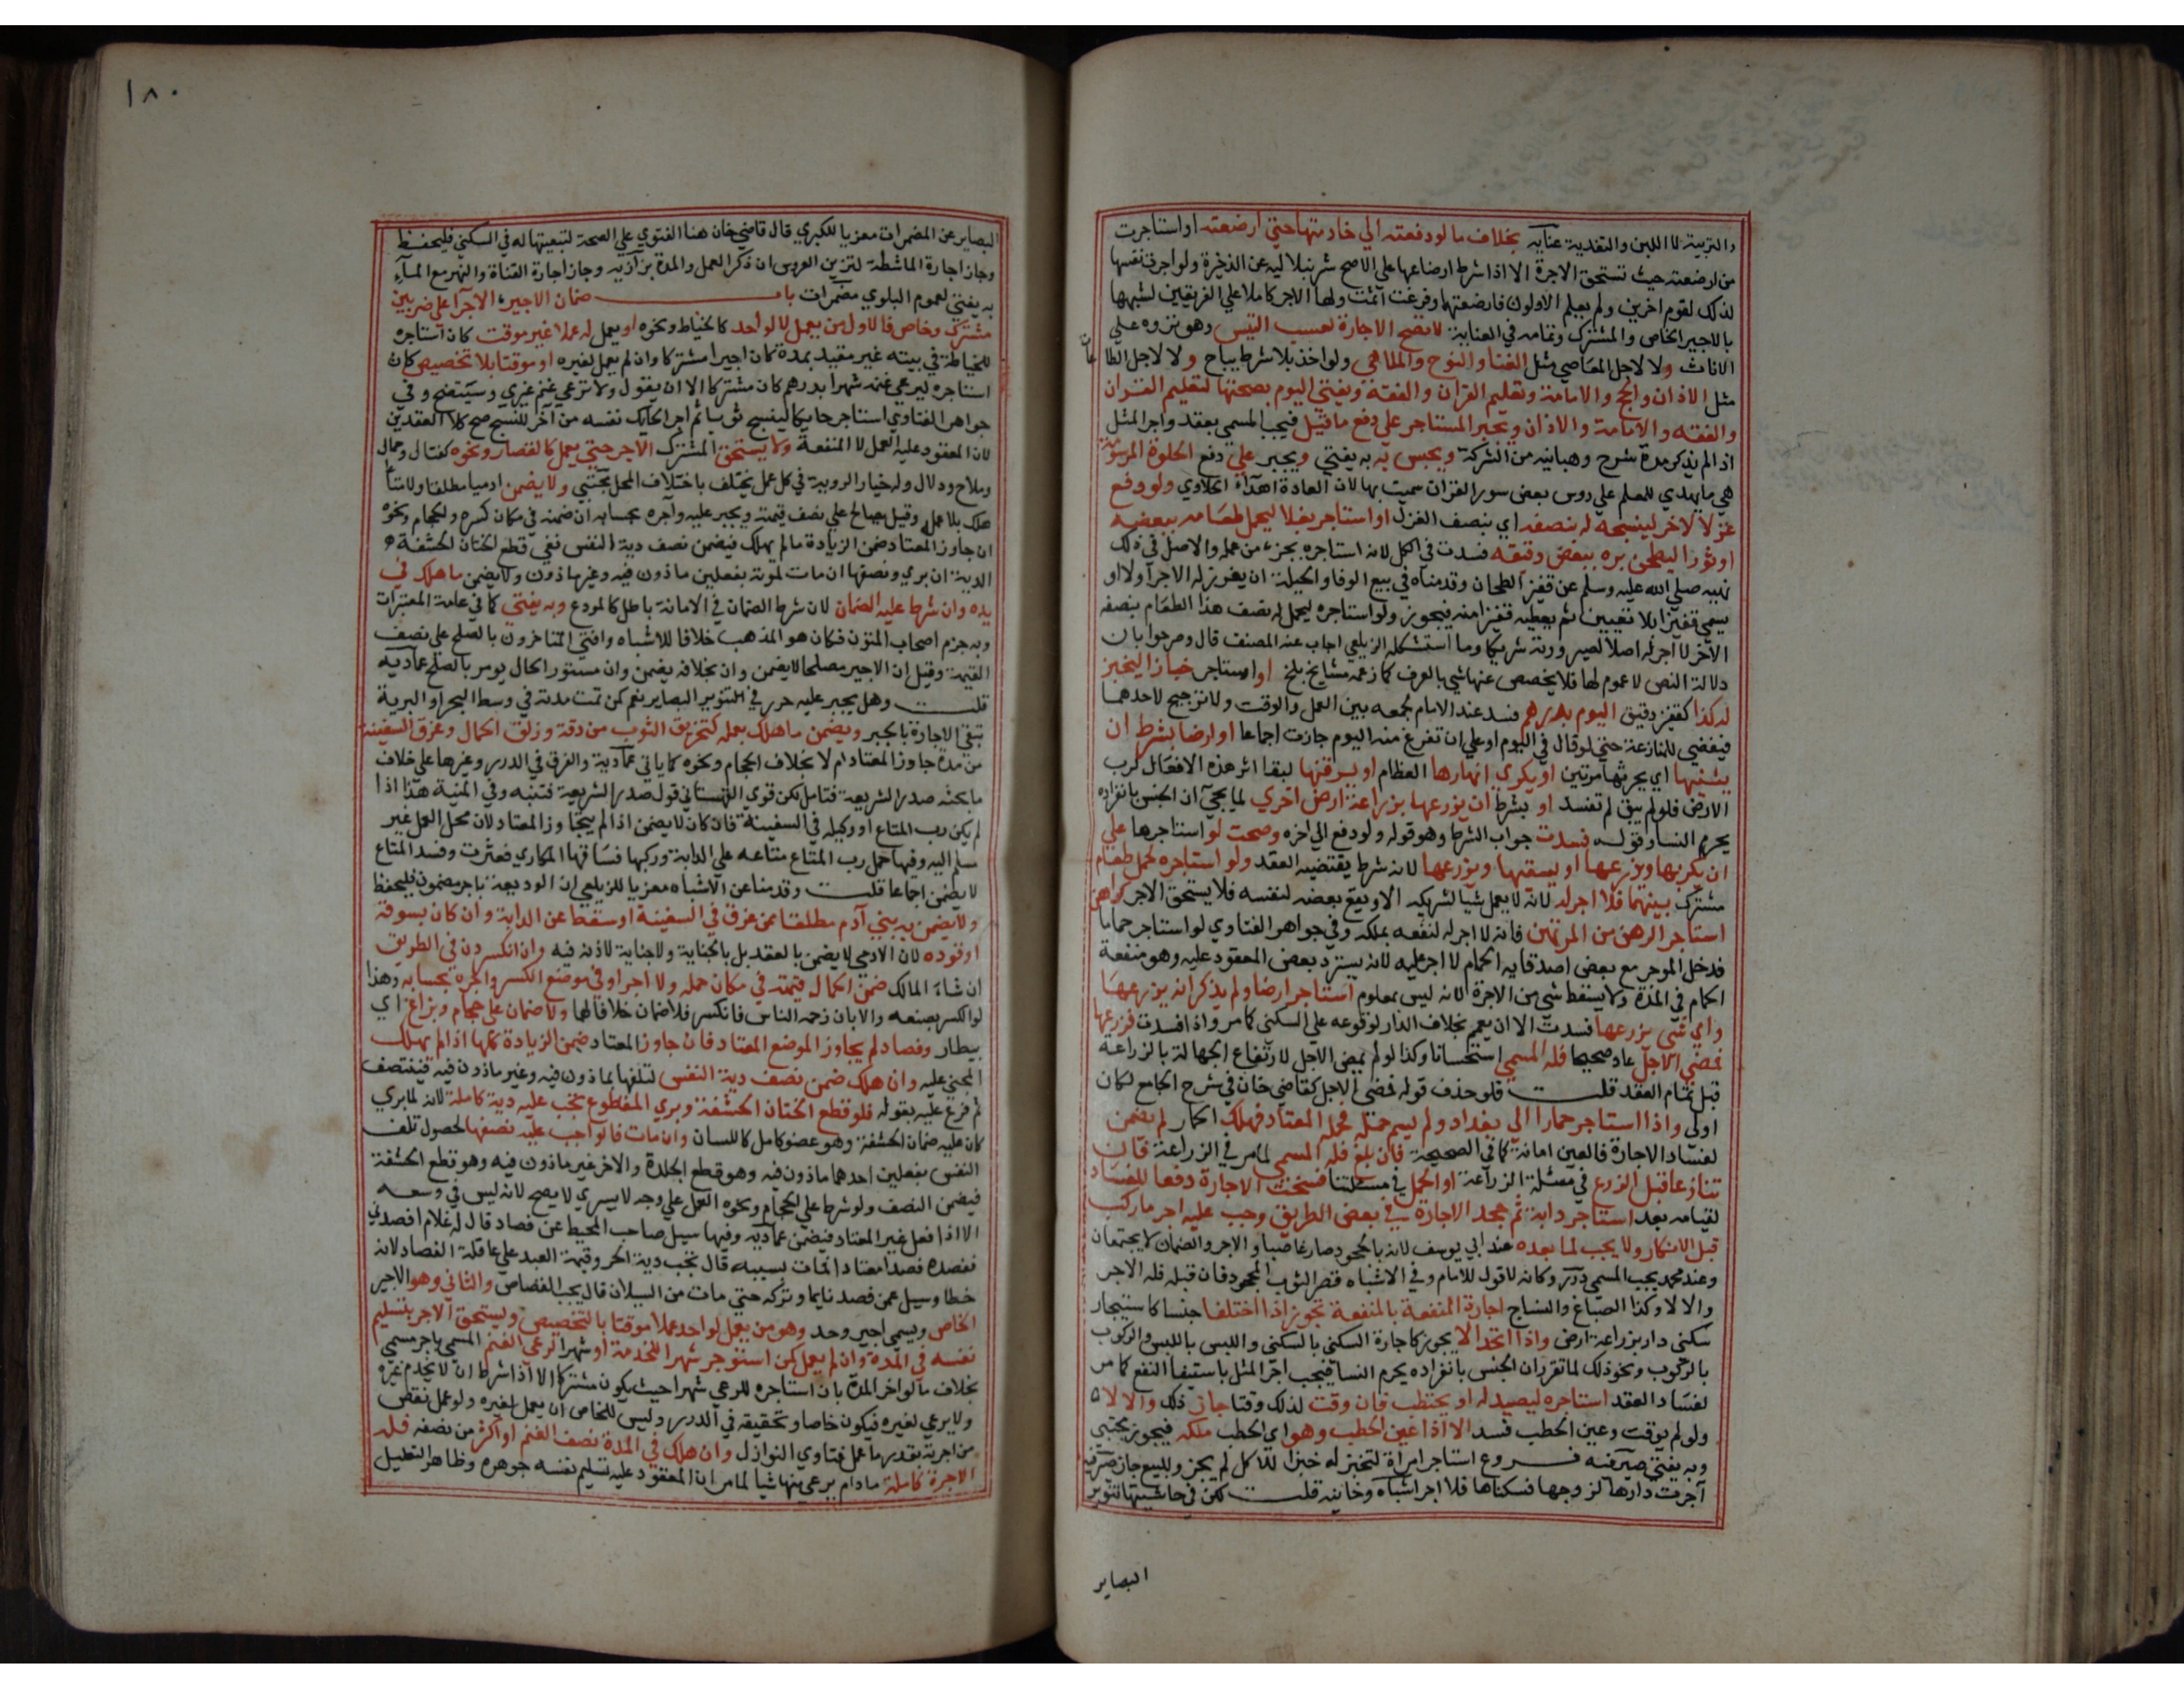 والتربية لا اللبن والتغذية عنايه بخلاف ما لو دفعته الي خادمتها حتي ارضعته او استاجرت
من ارضعته حيث تستحق الاجرة الا اذا شرط ارضاعها علي الاصح شرنبلاليه عن الذخيرة ولو اجرت نفسها
لذلك لقوم اخرين ولم يعلم الاولون فارضعتهما وفرغت اثمت ولها الاجر كاملا علي الفريقين لشبهها
بالاجير الخاص والمشترك وتمامه في العناية لا تصح الاجارة لعسب التيس وهو نزوه علي
الاناث ولا لاجل المعاصي مثل الغنا والنوح والملاهي ولو اخذ بلا شرط يباح ولا لاجل الطاعات
مثل الاذان والحج والامامة وتعليم القران والفقه ويفتي اليوم بصحتها لتعليم القران
والفقه والامامة والاذان ويجبر المستاجر علي دفع ما قيل فيجب المسمي بعقد واجر المثل
اذا لم يذكر مدة شرح وهبانيه من الشركة ويحبس به به يفتي ويجبر علي دفع الحلوة المرسومة
هي ما يهدي للمعلم علي روس بعض سور القران سميت بها لان العادة اهداء الحلاوي ولو دفع
غزلا لاخر لينسجه له بنصفه اي بنصف الغزل او استاجر بغلا ليحمل طعامه ببعضه
او ثورا ليطحن بره ببعض دقيقه فسدت في الكل لانه استاجره بجزء من عمله والاصل في ذلك
نهيه صلي الله عليه وسلم عن قفيز الطحان وقدمناه في بيع الوفا والحيلة ان يفرز له الاجر اولا او
يسمي قفيزا بلا تعيين ثم يعطيه قفيزا منه فيجوز ولو استاجره ليحمل له نصف هذا الطعام بنصفه
الاخر لا اجر له اصلا لصيرورته شريكا وما استشكله الزيلعي اجاب عنه المصنف قال وصرحوا بان
دلالة النص لا عموم لها فلا يخصص عنها شي بالعرف كما زعمه مشايخ بلخ او استاجر خبازا ليخبز
له كذا كقفيز دقيق اليوم بدرهم فسد عند الامام لجمعه بين العمل والوقت ولا ترجيح لاحدهما
فيفضي للمنازعة حتي لو قال في اليوم او علي ان تفرغ منه اليوم جازت اجماعا او ارضا بشرط ان
يثنيها اي يحرثها مرتين او يكري انهارها العظام او يسرقنها لبقا اثر هذه الافعال لرب
الارض فلو لم يبق لم تفسد او بشرط ان يزرعها بزراعة ارض اخري لما يجي ان الجنس بانفراده
يحرم النسا وقوله فسدت جواب الشرط وهو قوله ولو دفع الي اخره وصحت لو استاجرها علي
ان يكربها ويزرعها او يسقيها ويزرعها لانه شرط يقتضيه العقد ولو استاجره لحمل طعام
مشترك بينهما فلا اجر له لانه لا يعمل شيا لشريكه الا ويقع بعضه لنفسه فلا يستحق الاجر كراهن
استاجر الرهن من المرتهن فانه لا اجر له لنفعه بملكه وفي جواهر الفتاوي لو استاجر حماما
فدخل الموجر مع بعض اصدقايه الحمام لا اجر عليه لانه يسترد بعض المعقود عليه وهو منفعة
الحمام في المدة ولا يسقط شي من الاجرة لانه ليس بمعلوم استاجر ارضا ولم يذكر انه يزرعها
واي شي يزرعها فسدت الا ان يعمم بخلاف الدار لوقوعه علي السكني كما مر واذا فسدت فزرعها
فمضي الاجل عاد صحيحا فله المسمي استحسانا وكذا لو لم يمض الاجل لارتفاع الجهالة بالزراعة
قبل تمام العقد قلت فلو حذف قوله فمضي الاجل كقاضي خان في شرح الجامع لكان
اولي واذا استاجر حمارا الي بغداد ولم يسم حمله فحمله المعتاد فهلك الحمار لم يضمن
لفساد الاجارة فالعين امانة كما في الصحيحة فان بلغ فله المسمي لما مر في الزراعة فان
تنازعا قبل الزرع في مسئلة الزراعة او الحمل في مسئلتنا فسخت الاجارة دفعا للفساد
لقيامه بعد استاجر دابة ثم جحد الاجارة في بعض الطريق وجب عليه اجر ما ركب
قبل الانكار ولا يجب لما بعده عند ابي يوسف لانه بالجحود صار غاصبا والاجر والضمان لا يجتمعان
وعند محمد يجب المسمي درر وكانه لا قول للامام وفي الاشباه قصر الثوب المجحود فان قبله فله الاجر
والا لا وكذا الصباغ والنساج اجارة المنفعة بالمنفعة تجوز اذا اختلفا جنسا كاستيجار
سكني دار بزراعة ارض واذا اتحدا لا يجوز كاجارة السكني بالسكني واللبس باللبس والركوب
بالركوب ونحو ذلك لما تقرر ان الجنس بانفراده يحرم النسا فيجب اجر المثل باستيفا النفع كما مر
لفساد العقد استاجره ليصيد له او يحتطب فان وقت لذلك وقتا جاز ذلك والا لا
ولو لم يوقت وعين الحطب فسد الا اذا عين الحطب وهو اي الحطب ملكه فيجوز مجتبي
وبه يفتي صيرفيه فروع استاجر امراة لتخبز له خبزا للاكل لم يجز وللبيع جاز صيرفيه
آجرت دارها لزوجها فسكناها فلا اجر اشباه وخانيه قلت لكن في حاشيتها تنوير
البصاير
١٨٠
البصاير عن المضمرات معزيا للكبري قال قاضي خان هنا الفتوي علي الصحة لتبعيتها له في السكني فليحفظ
وجاز اجارة الماشطة لتزين العروس ان ذكر العمل والمدة بزازيه وجاز اجارة القناة والنهر مع الماء
به يفتي لعموم البلوي مضمرات باب ضمان الاجير الاجرا علي ضربين
مشترك وخاص فالاول من يعمل لا لواحد كالخياط ونحوه او يعمل له عملا غير موقت كان استاجره
للخياطة في بيته غير مقيد بمدة كان اجيرا مشتركا وان لم يعمل لغيره او موقتا بلا تخصيص كان
استاجره ليرعي غنمه شهرا بدرهم كان مشتركا الا ان يقول ولا ترعي غنم غيري وسيتضح وفي
جواهر الفتاوي استاجر حايكا لينسج ثوبا ثم اجر الحايك نفسه من اخر للنسج صح كلا العقدين
لان المعقود عليه العمل لا المنفعة ولا يستحق المشترك الاجر حتي يعمل كالقصار ونحوه كفتال وحمال
وملاح ودلال وله خيار الروية في كل عمل يختلف باختلاف المحل مجتبي ولا يضمن
هلك بلا عمله وقيل يصالح علي نصف قيمته ويجبر عليه واجره بحسابه ان ضمنه في مكان كسره والحجام ونحوه
ان جاوز المعتاد ضمن الزيادة ما لم يهلك فيضمن نصف دية النفس ففي قطع الختان الحشفة
الدية ان بري ونصفها ان مات لموته بفعلين ماذون فيه وغير ماذون ولا يضمن ما هلك في
يده وان شرط عليه الضمان لان شرط الضمان في الامانة باطل كالمودع وبه يفتي كما في عامة المعتبرات
وبه جزم اصحاب المتون فكان هو المذهب خلافا للاشباه وافتي المتاخرون بالصلح علي نصف
القيمة وقيل ان الاجير مصلحا لا يضمن وان بخلافه يضمن وان مستور الحال يومر بالصلح عماديه
قلت وهل يجبر عليه حرر في تنوير البصاير نعم كمن تمت مدته في وسط البحر او البرية
تبقي الاجارة بالجبر ويضمن ما هلك بعمله كتخريق الثوب من دقه وزلق الحمال وغرق السفينة
من مده جاوز المعتاد ام لا بخلاف الحجام ونحوه كما ياتي عماديه والفرق في الدرر وغيرها علي خلاف
ما بحثه صدر الشريعة فتامل لكن قوي القهستاني قول صدر الشريعة فتنبه وفي المنية هذا اذا
لم يكن رب المتاع او وكيله في السفينة فان كان لا يضمن اذا لم يتجاوز المعتاد لان محل العمل غير
مسلم اليه وفيها حمل رب المتاع متاعه علي الدابة وركبها فساقها المكاري فعثرت وفسد المتاع
لا يضمن اجماعا قلت وقدمنا عن الاشباه معزيا للزيلعي ان الوديعة باجر مضمون فليحفظ
ولا يضمن به بني آدم مطلقا ممن غرق في السفينة او سقط عن الدابة وان كان بسوقه
او قوده لان الادمي لا يضمن بالعقد بل بالجناية ولا جناية لاذنه فيه وان انكسر دن في الطريق
ان شاء المالك ضمن الحمال قيمته في مكان حمله ولا اجر او في موضع الكسر واجره بحسابه وهذا
لو الكسر بصنعه والا بان زحمه الناس فانكسر فلا ضمان خلافا لهما ولا ضمان علي حجام وبزاغ اي
بيطار وفصاد لم يجاوز الموضع المعتاد فان جاوز المعتاد ضمن الزيادة كلها اذا لم يهلك
المجني عليه وان هلك ضمن نصف دية النفس لتلفها بماذون فيه وغير ماذون فيه فيتنصف
ثم فرع عليه بقوله فلو قطع الختان الحشفة وبري المقطوع تجب عليه دية كاملة لانه لما بري
كان عليه ضمان الحشفة وهو عضو كامل كاللسان وان مات فالواجب عليه نصفها لحصول تلف
النفس بفعلين احدهما ماذون فيه وهو قطع الجلدة والاخر غير ماذون فيه وهو قطع الحشفة
فيضمن النصف ولو شرط علي الحجام ونحوه العمل علي وجه لا يسري لا يصح لانه ليس في وسعه
الا اذا فعل غير المعتاد فيضمن عماديه وفيها سيل صاحب المحيط عن فصاد قال له غلام افصدني
ففصده فصدا معتادا فمات بسببه قال تجب دية الحر وقيمة العبد علي عاقلة الفصاد لانه
خطا وسيل عمن فصد نايما وتركه حتي مات من السيلان قال يجب القصاص والثاني وهو الاجير
الخاص ويسمي اجير وحد وهو من يعمل لواحد عملا موقتا بالتخصيص ويستحق الاجر بتسليم
نفسه في المدة وان لم يعمل كمن استوجر شهرا للخدمة او شهرا لرعي الغنم المسمي باجر مسمي
بخلاف ما لو اخر المدة بان استاجره للرعي شهرا حيث يكون مشتركا الا اذا شرط ان لا يخدم غيره
ولا يرعي لغيره فيكون خاصا وتحقيقه في الدرر وليس للخاص ان يعمل لغيره ولو عمل نقص
من اجرته بقدر ما عمل فتاوي النوازل وان هلك في المدة نصف الغنم او اكثر من نصفه فله
الاجرة كاملة ما دام يرعي منها شيا لما مر ان المعقود عليه تسليم نفسه جوهره وظاهر التعليل